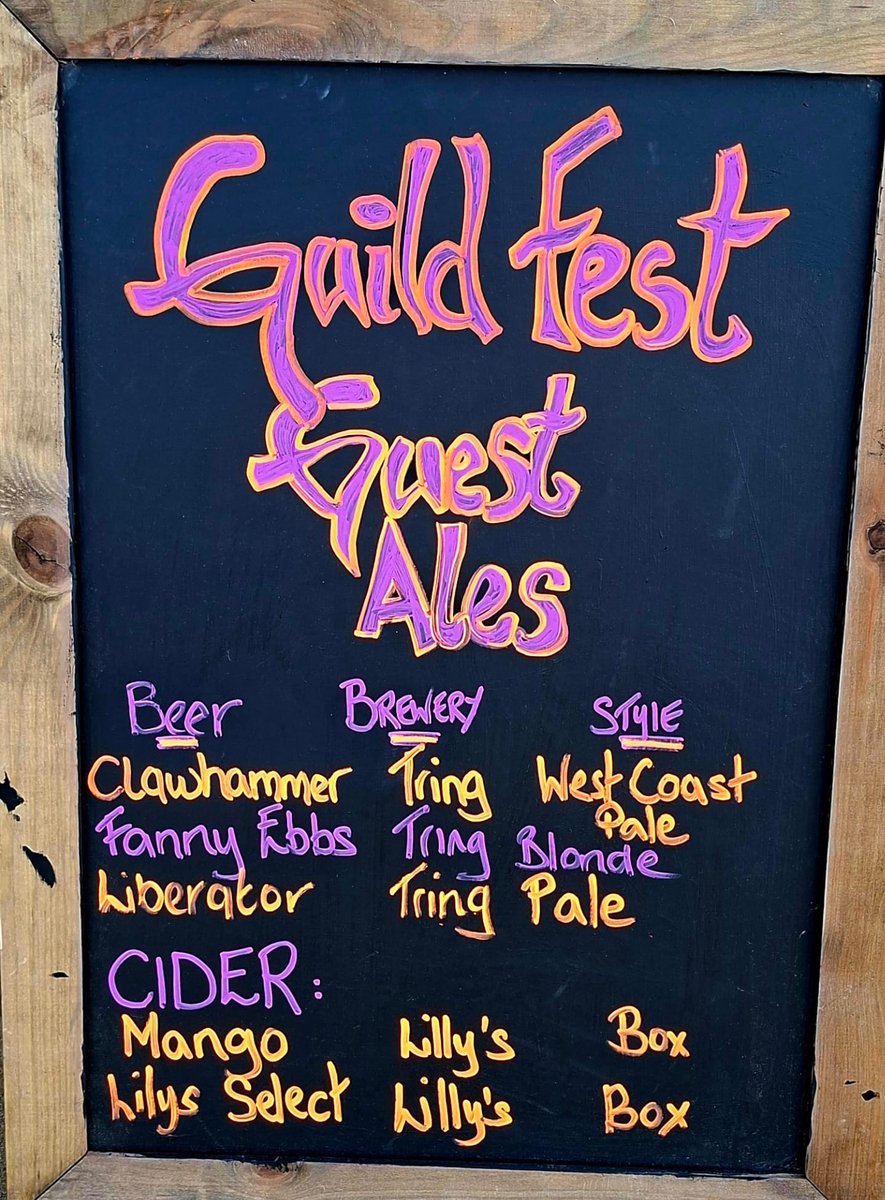 Guild Fest
Guest
Ales
Beer Brewery Style
Clawhammer Tring West Coast
Pale
Fanny Ebbs Tring Blonde
Liberator Tring Pale
CIDER:
Mango Lilly's Box
Lilys Select Lilly's Box